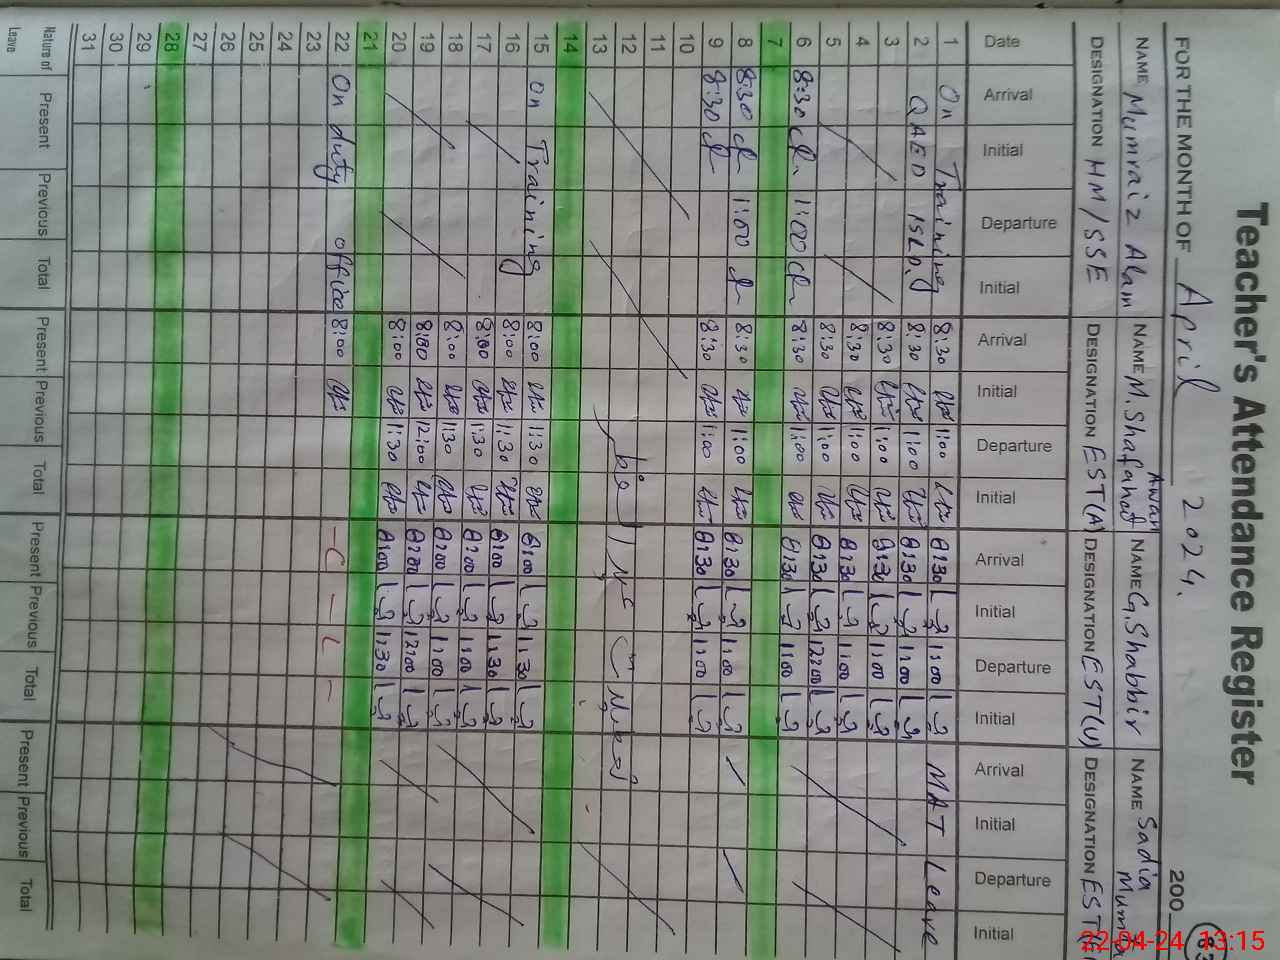 Teacher's Attendance Register
FOR THE MONTH OF April 2024. 200
NAME Mumraiz Alam NAME M. Shafahat Awan NAME G, Shabbir NAME Sadia Mumta
DESIGNATION HM/SSE DESIGNATION EST(A) DESIGNATION EST(U) DESIGNATION EST
Date Arrival Initial Departure Initial Arrival Initial Departure Initial Arrival Initial Departure Initial Arrival Initial Departure Initial
1 On Training 8:30 1:00 8:30 1:00 MAT Leave
2 QAED ISLD. 8:30 1:00 8:30 1:00
3 8:30 1:00 8:30 1:00
4 8:30 1:00 8:30 1:00
5 8:30 1:00 8:30 12:00
6 8:30 1:00 8:30 1:00 8:30 1:00
7
8 8:30 1:00 8:30 1:00 8:30 1:00
9 8:30 8:30 1:00 8:30 1:00
10
11
12
13
14
15 On Training 8:00 1:30 8:00 1:30
16 8:00 1:30 8:00 1:30
17 8:00 1:30 8:00 1:00
18 8:00 1:30 8:00 1:00
19 8:00 12:00 8:00 12:00
20 8:00 1:30 8:00 1:30
21
22 On duty office 8:00 - C - L -
23
24
25
26
27
28
29
30
31
Nature of Leave Present Previous Total Present Previous Total Present Previous Total Present Previous Total
22-04-24 13:15